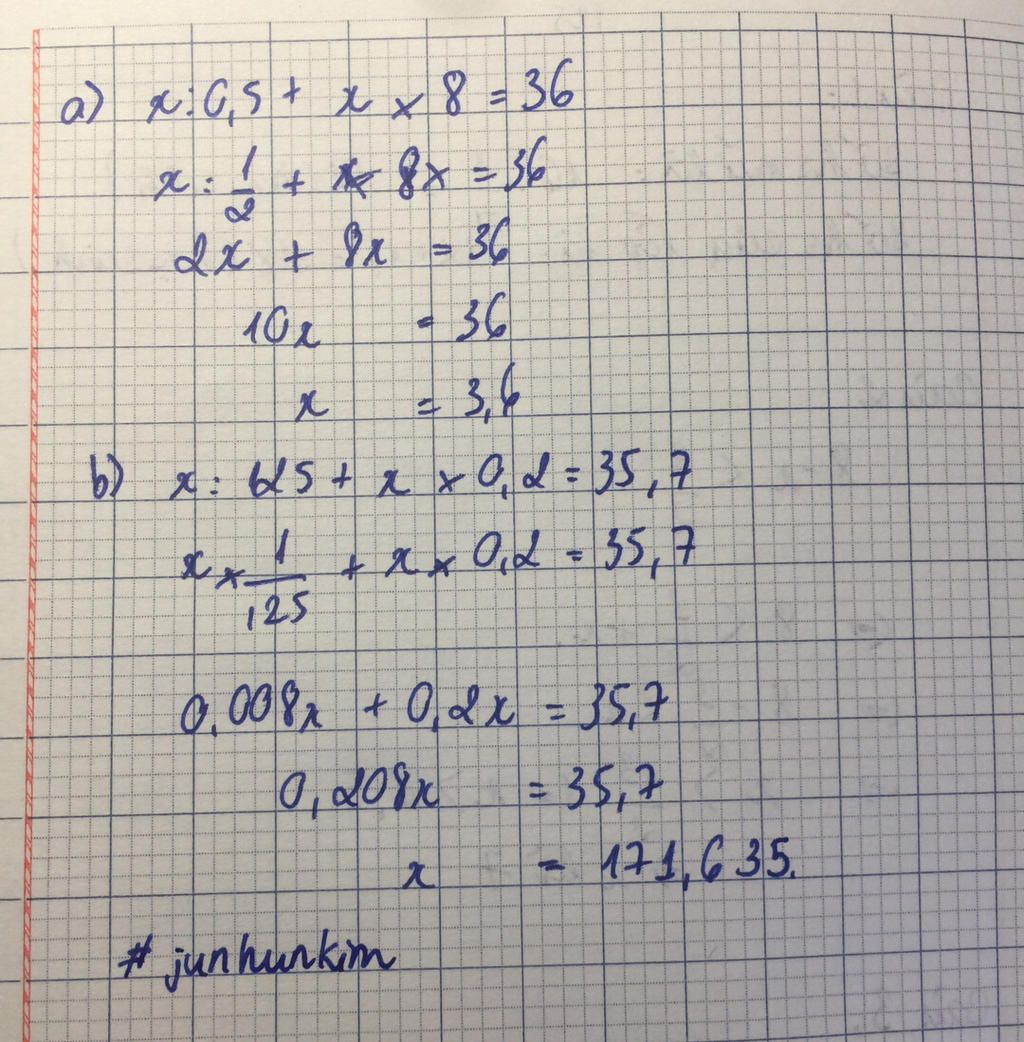 a) x : 0,5 + x × 8 = 36
x : 1/2 + 8x = 36
2x + 8x = 36
10x = 36
x = 3,6
b) x : 125 + x × 0,2 = 35,7
x × 1/125 + x × 0,2 = 35,7
0,008x + 0,2x = 35,7
0,208x = 35,7
x = 171,635.
# junhunkim